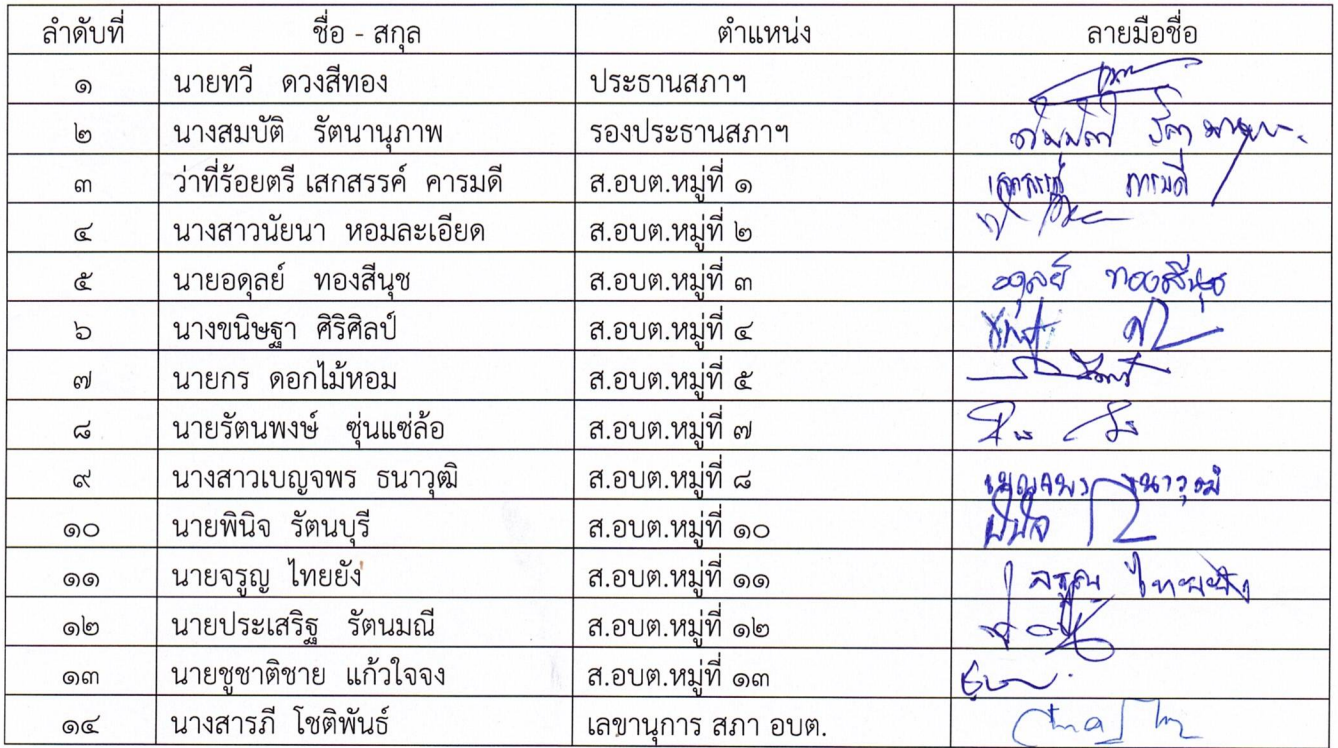 ลำดับที่ ชื่อ - สกุล ตำแหน่ง ลายมือชื่อ
๑ นายทวี ดวงสีทอง ประธานสภาฯ
๒ นางสมบัติ รัตนานุภาพ รองประธานสภาฯ
๓ ว่าที่ร้อยตรี เสกสรรค์ คารมดี ส.อบต.หมู่ที่ ๑ เสกสรรค์ คารมดี
๔ นางสาวนัยนา หอมละเอียด ส.อบต.หมู่ที่ ๒
๕ นายอดุลย์ ทองสีนุช ส.อบต.หมู่ที่ ๓ อดุลย์ ทองสีนุช
๖ นางขนิษฐา ศิริศิลป์ ส.อบต.หมู่ที่ ๔
๗ นายกร ดอกไม้หอม ส.อบต.หมู่ที่ ๕
๘ นายรัตนพงษ์ ซุ่นแซ่ล้อ ส.อบต.หมู่ที่ ๗
๙ นางสาวเบญจพร ธนาวุฒิ ส.อบต.หมู่ที่ ๘ เบญจพร ธนาวุฒิ
๑๐ นายพินิจ รัตนบุรี ส.อบต.หมู่ที่ ๑๐ พินิจ
๑๑ นายจรูญ ไทยยัง ส.อบต.หมู่ที่ ๑๑ จรูญ ไทยยัง
๑๒ นายประเสริฐ รัตนมณี ส.อบต.หมู่ที่ ๑๒
๑๓ นายชูชาติชาย แก้วใจจง ส.อบต.หมู่ที่ ๑๓
๑๔ นางสารภี โชติพันธ์ เลขานุการ สภา อบต.